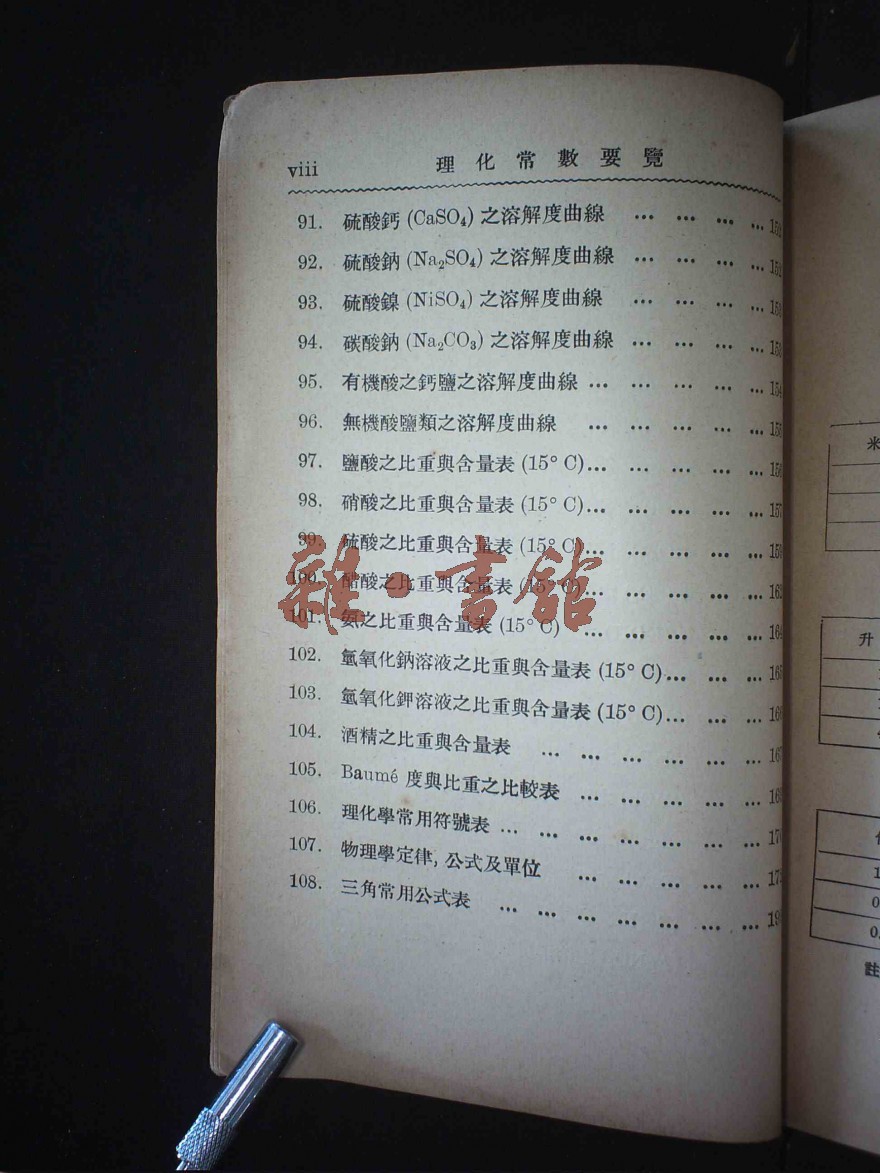 viii 理化常數要覽
91. 硫酸鈣 (CaSO₄) 之溶解度曲線 ... ... ... ...
92. 硫酸鈉 (Na₂SO₄) 之溶解度曲線 ... ... ... ...
93. 硫酸鎳 (NiSO₄) 之溶解度曲線 ... ... ... ...
94. 碳酸鈉 (Na₂CO₃) 之溶解度曲線 ... ... ... ...
95. 有機酸之鈣鹽之溶解度曲線 ... ... ... ... ... 154
96. 無機酸鹽類之溶解度曲線 ... ... ... ... ... 155
97. 鹽酸之比重與含量表 (15° C)... ... ... ... ... 156
98. 硝酸之比重與含量表 (15° C)... ... ... ... ... 157
99. 硫酸之比重與含量表 (15° C)... ... ... ... ... 159
100. 醋酸之比重與含量表 (15° C)... ... ... ... ... 162
101. 氨之比重與含量表 (15° C) ... ... ... ... ... 164
102. 氫氧化鈉溶液之比重與含量表 (15° C)... ... ... 165
103. 氫氧化鉀溶液之比重與含量表 (15° C)... ... ... 166
104. 酒精之比重與含量表 ... ... ... ... ... ... 167
105. Baumé 度與比重之比較表 ... ... ... ... ... 169
106. 理化學常用符號表 ... ... ... ... ... ... ... 170
107. 物理學定律, 公式及單位 ... ... ... ... ...
108. 三角常用公式表 ... ... ... ... ... ... ...
雜·書館
米
升
註